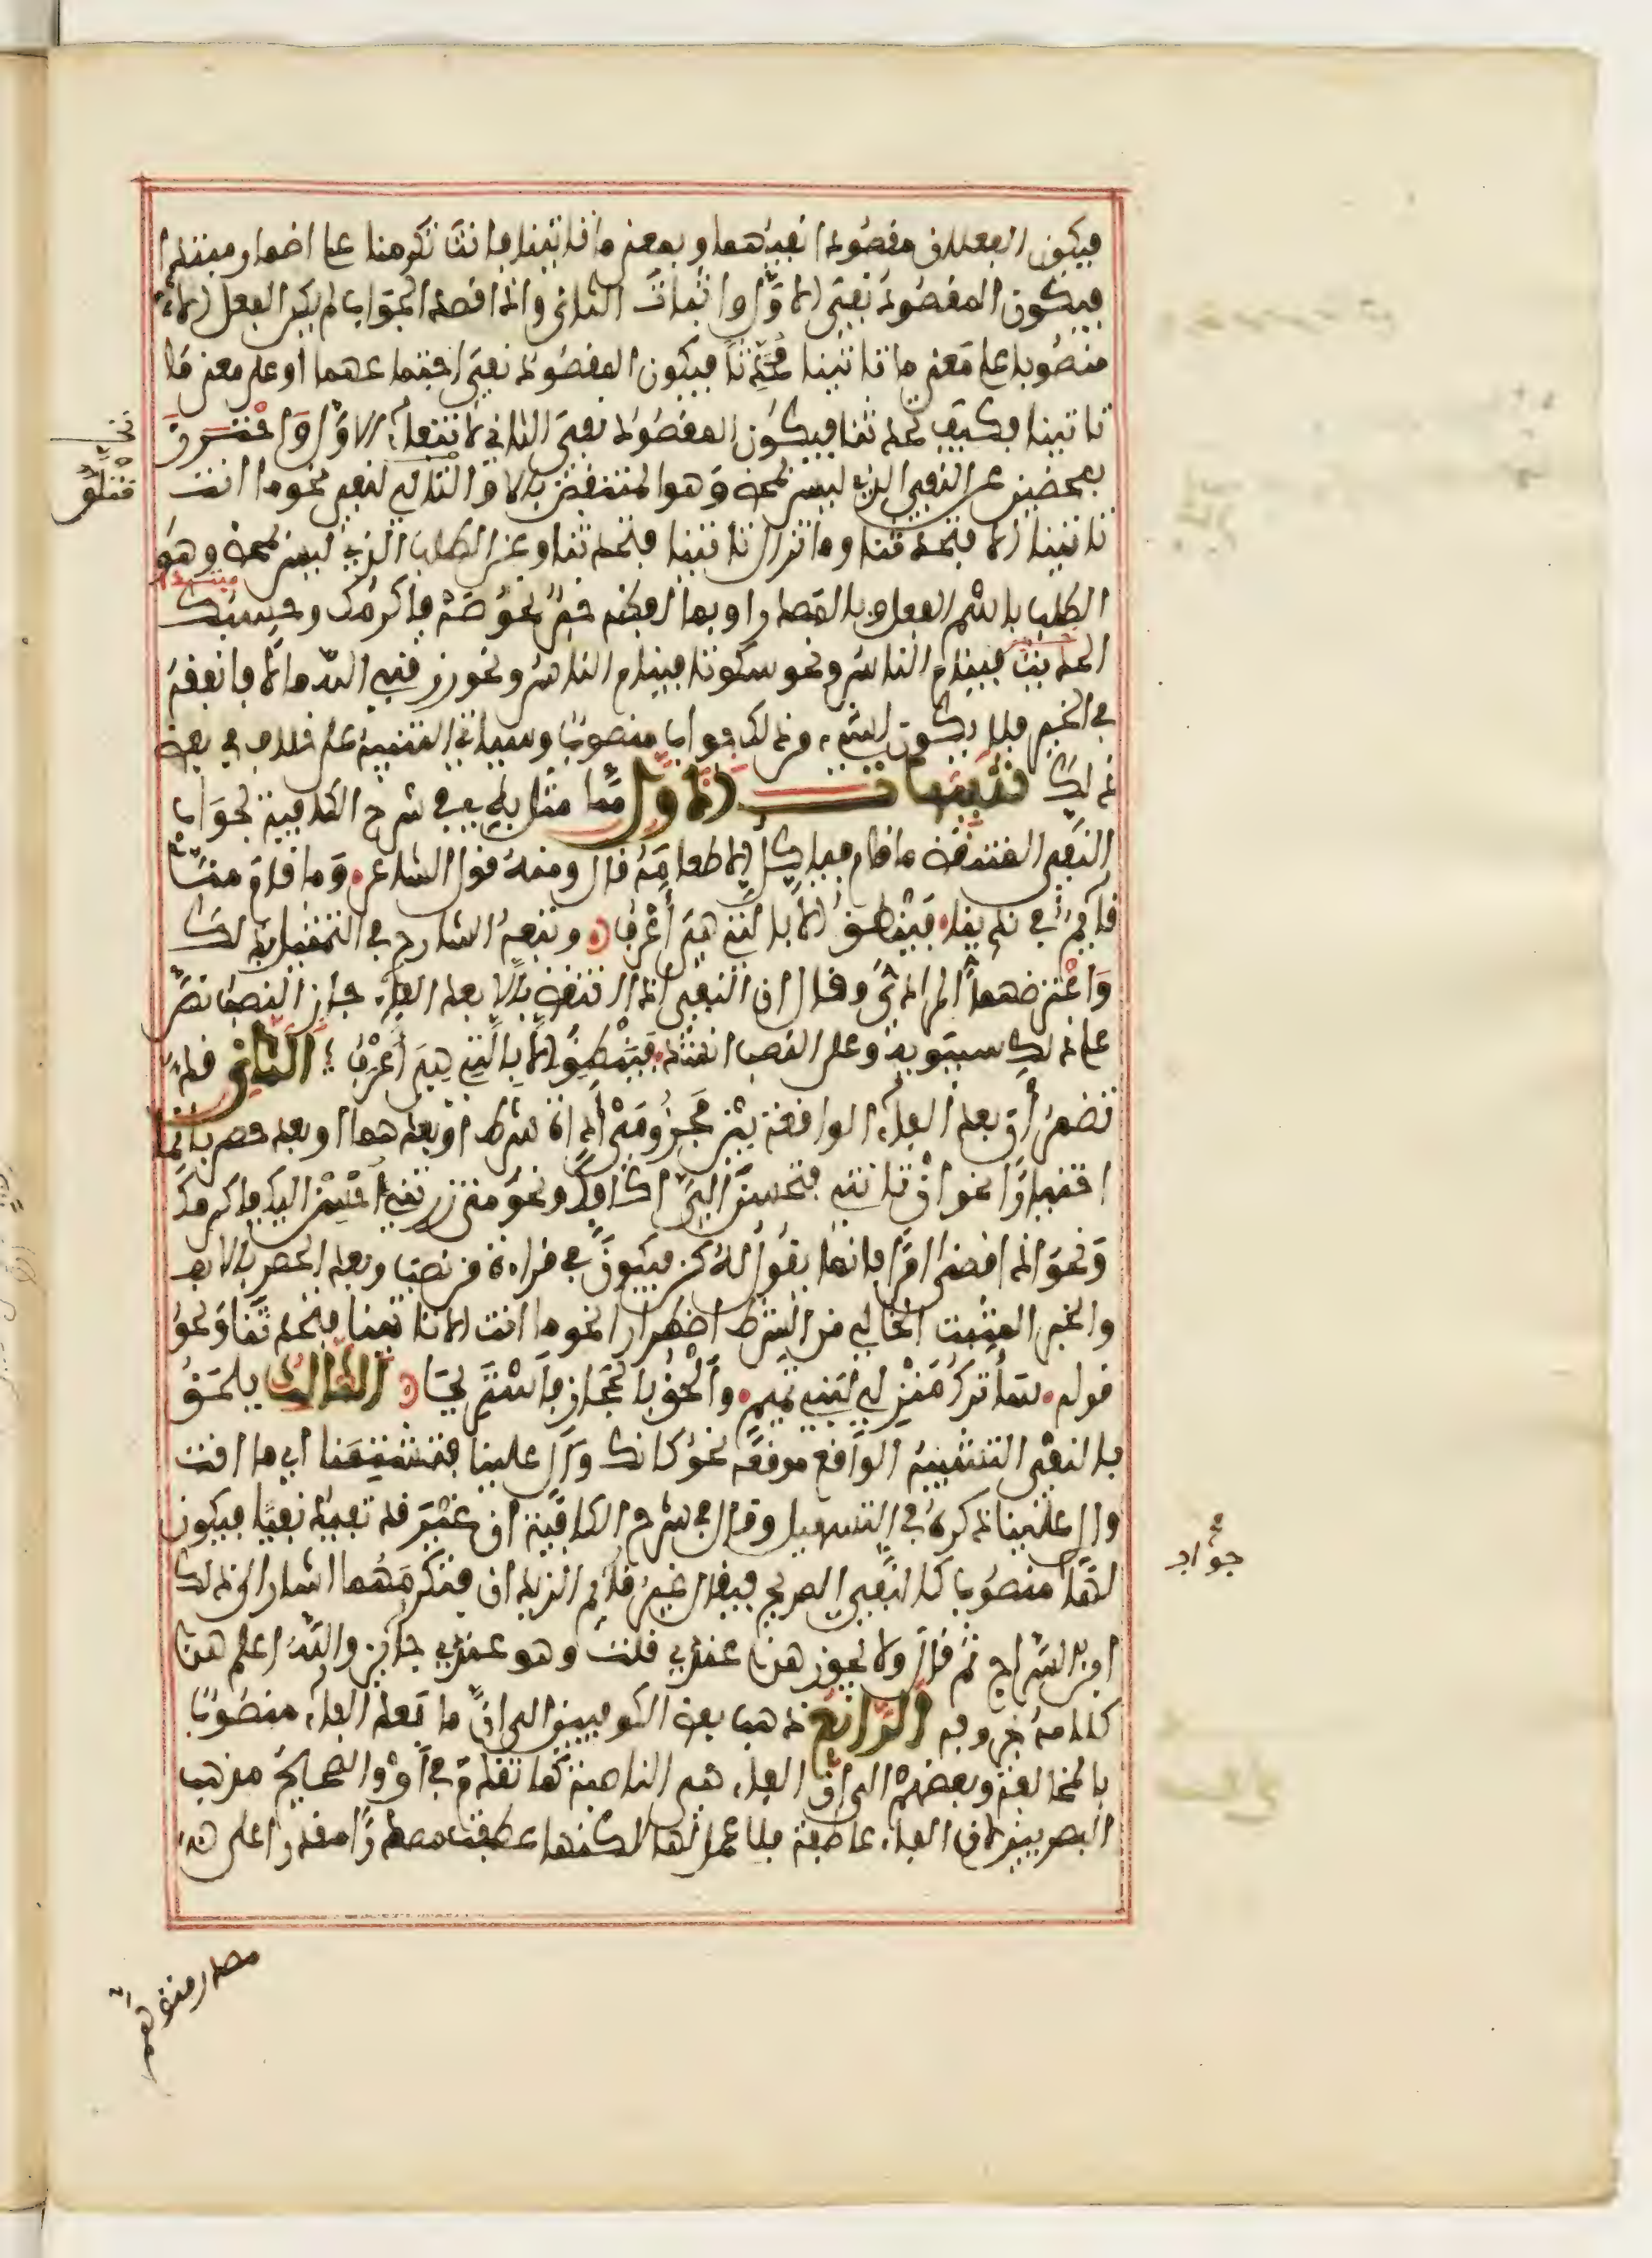 فيكون الفعلان مقصودا نفيهما وبمعنى ما تاتينا فانت تكرمنا على اضمار مبتدإ
فيكون المقصود نفي الاول واثبات الثاني واذا قصد الجواب لم يكن الفعل الا
منصوبا على معنى ما تاتينا محدثا فيكون المقصود نفي اجتماعهما او على معنى ما
تاتينا فكيف تحدثنا فيكون المقصود نفي الثاني لانتفاء الاول واحترز
بمحضين عن النفي الذي ليس بمحض وهو المنتقض بالا والتالي لنفي نحو ما انت
تاتينا الا فتحدثنا وما تزال تاتينا فتحدثنا وعن الطلب الذي ليس بمحض وهو
الطلب باسم الفعل وبالمصدر او بما لفظه خبر نحو صه فاكرمك وحسبك
الحديث فينام الناس ونحو سكوتا فينام الناس ونحو رزقني الله مالا فانفقه
في الخير فلا يكون لشيء من ذلك جواب منصوب وسياتي التنبيه على خلاف في بعض
ذلك تنبيهات الاول مما مثل به في شرح الكافية لجواب
النفي المنتقض ما قام فياكل الا طعامه قال ومنه قول الشاعر وما قام منا
قايم في ندينا فينطق الا بالتي هي اعرف وتبعه الشارح في التمثيل بذلك
واعترضهما المرادي وقال ان النفي اذا انتقض بالا بعد الفاء جاز النصب نص
على ذلك سيبويه وعلى النصب انشد فينطق الا بالتي هي اعرف الثاني قد
تضمر أن بعد الفاء الواقعة بين مجزومي اداة شرط او بعدهما او بعد حصر بانما
اختيارا نحو ان تاتني فتحسن الي اكافك ونحو متى زرتني احسن اليك فاكرمك
ونحو اذا قضى امرا فانما يقول له كن فيكون في قراءة من نصب وبعد الحصر بالا
والخبر المثبت الخالي من الشرط اضطرارا نحو ما انت الا تاتينا فتحدثنا ونحو
قوله ساترك منزلي لبني تميم والحق بالحجاز فاستريحا الثالث يلحق
بالنفي التشبيه الواقع موقعه نحو كانك وال علينا فتشتمنا اي ما انت
وال علينا ذكره في التسهيل وقال في شرح الكافية ان غير قد تفيد نفيا فيكون
لها جواب منصوب كالنفي الصريح فيقال غير قايم الزيدان فتكرمهما اشار الى ذلك
ابن السراج ثم قال ولا يجوز هذا عندي قلت وهو عندي جايز والله اعلم هذا
كلامه بحروفه الرابع ذهب بعض الكوفيين الى ان ما بعد الفاء منصوب
بالمخالفة وبعضهم الى ان الفاء هي الناصبة كما تقدم في او والصحيح مذهب
البصريين لان الفاء عاطفة فلا عمل لها لكنها عطفت مصدرا مقدرا على
مصدر متوهم